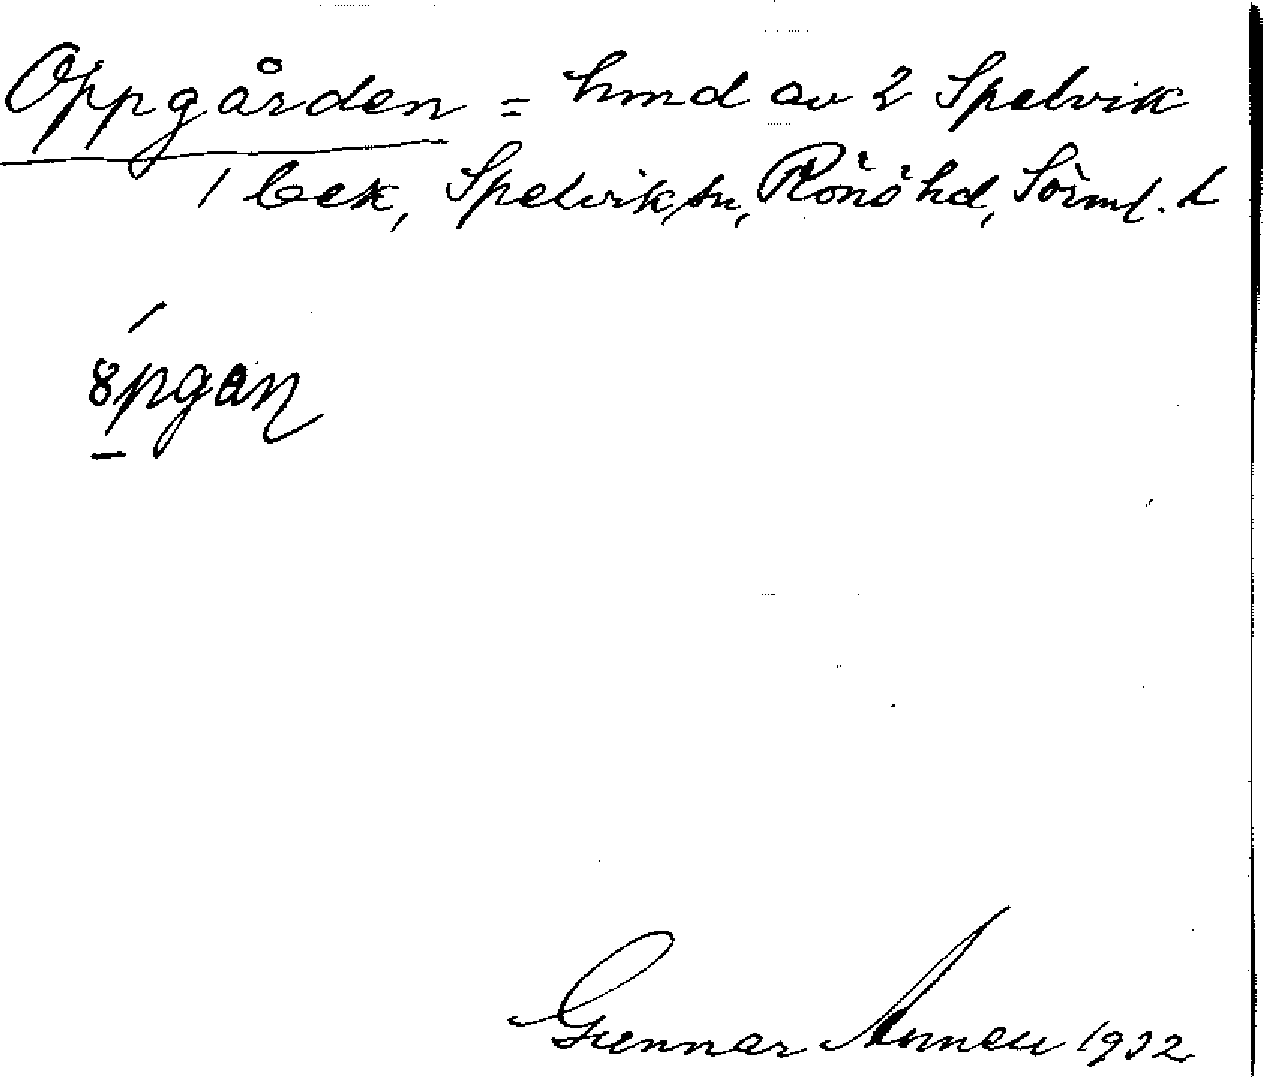 Oppgården = hmd av 2 Spelvik
1 bek, Spelvik sn, Rönö hd, Sörml. L
Gunnar 1932